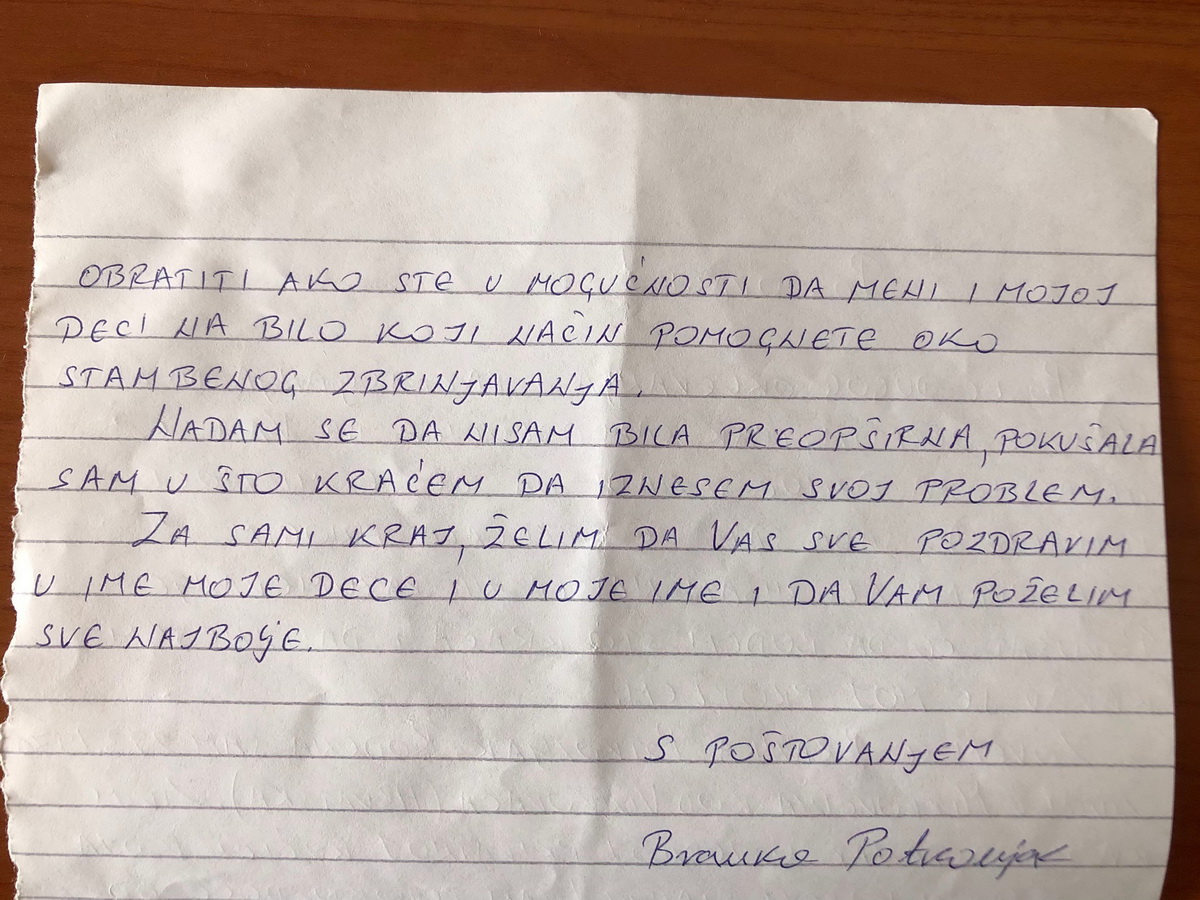 OBRATITI AKO STE U MOGUĆNOSTI DA MENI I MOJOJ
DECI NA BILO KOJI NAČIN POMOGNETE OKO
STAMBENOG ZBRINJAVANJA.
NADAM SE DA NISAM BILA PREOPŠIRNA, POKUŠALA
SAM U ŠTO KRAĆEM DA IZNESEM SVOJ PROBLEM.
ZA SAMI KRAJ, ŽELIM DA VAS SVE POZDRAVIM
U IME MOJE DECE I U MOJE IME I DA VAM POŽELIM
SVE NAJBOLJE.
S POŠTOVANJEM
Branka Potkonjak